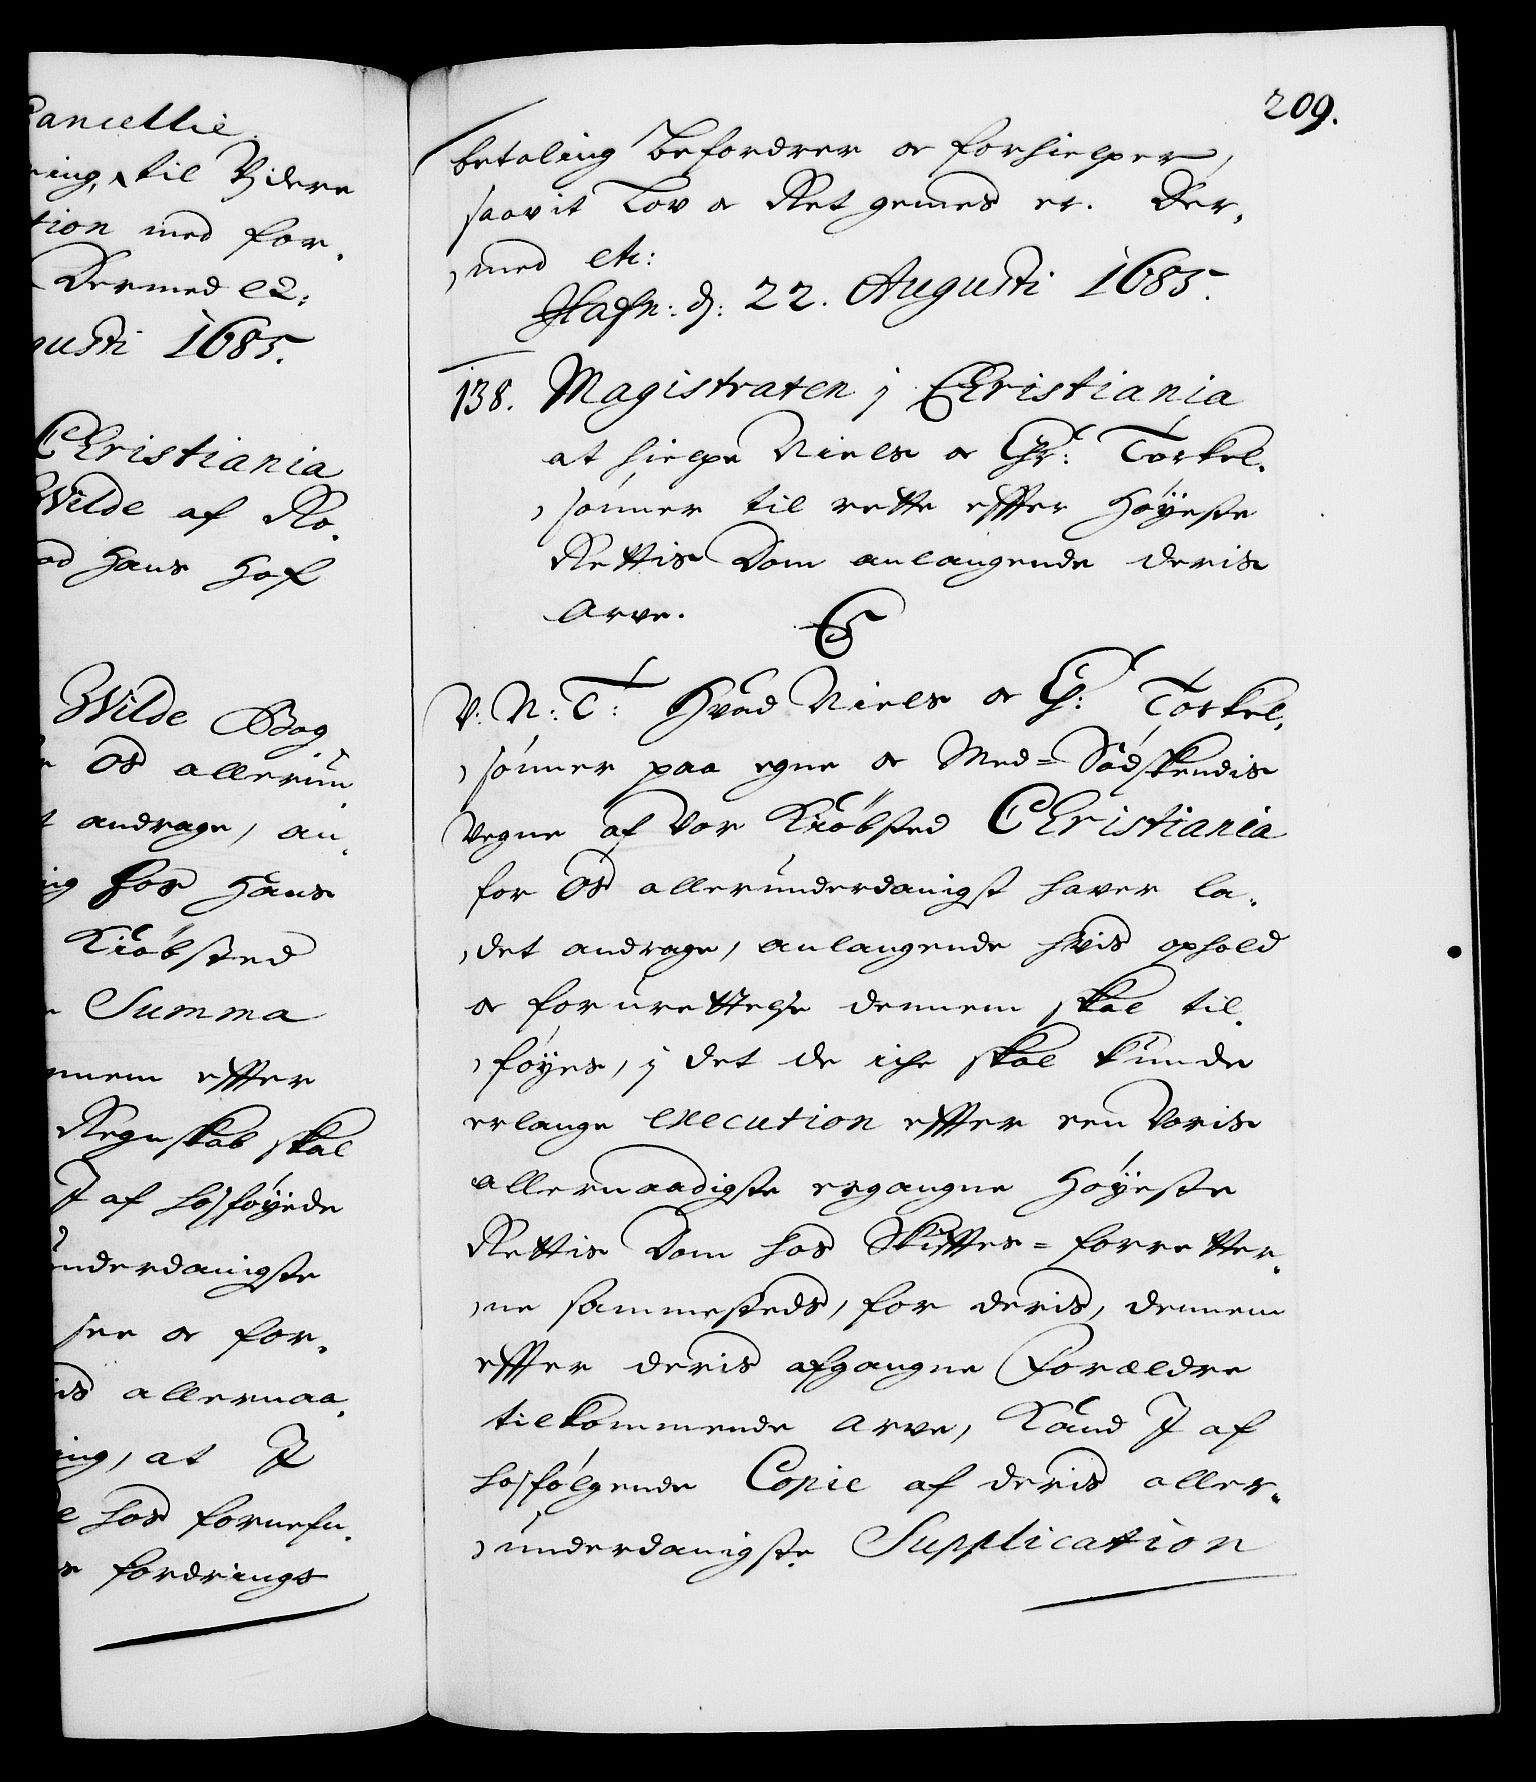 Cancellie.
ning, til Videre
tion med for-
Dermed etc:
gusti 1685.
Christiania
Wilde af Ro-
od Hans Hof
Wilde Bog
Os allerun-
andrage, an-
ing for Hans
Kiøbsted
Summa
nnem effter
Regnskab skal
I af hosføyede
underdanigste
see oc for-
is allernaa-
ing, at I
hos fornefn-
fordrings
209.
betaling befordrer oc forhielper,
saavit Lov oc Ret gemes er. Der-
med etc:
Hafn: d: 22. Augusti 1685.
138. Magistraten i Christiania
at hielpe Niels oc Chr: Torkel-
sønner til rette effter Høyeste
Rettis Dom anlangende deris
Arve.
C5
V. N: T: Hvad Niels oc Ch: Torkel-
sønner paa egne oc Med-Sødskendis
Vegne af Vor Kiøbsted Christiania
for Os allerunderdanigst haver la-
det andrage, anlangende hvis ophold
oc forurettelse dennem skal til-
føyes, i det de iche skal kunde
erlange execution effter een Voris
allernaadigste ergangne Høyeste
Rettis Dom hos Skiftes-forretter-
ne sammesteds, for deris, dennem
effter deris afgangne Forældre
tilkommende Arve, Kand I af
hosfølgende Copie af deris aller-
underdanigste Supplication